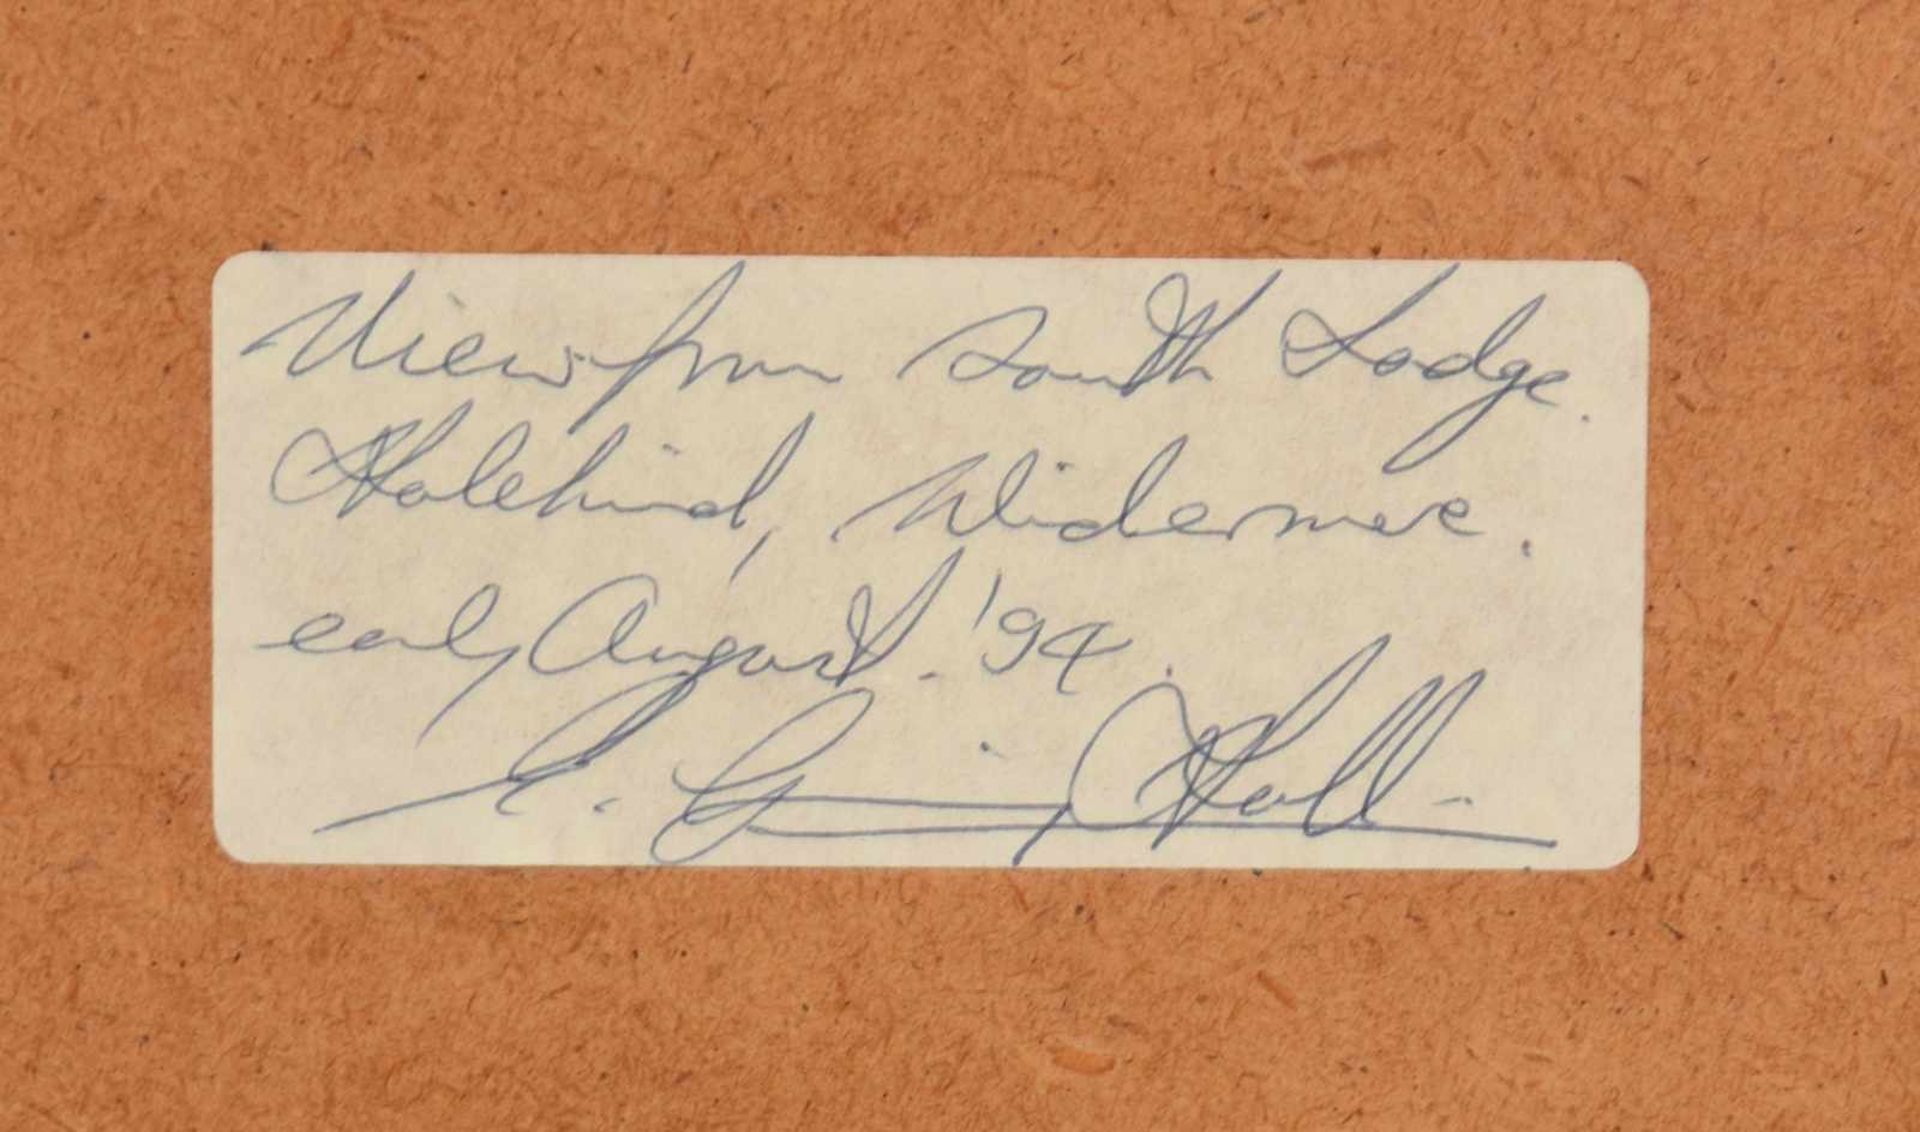 View from South Lodge.
Holehird, Widermere.
early August. '94.
E. Greig Hall -